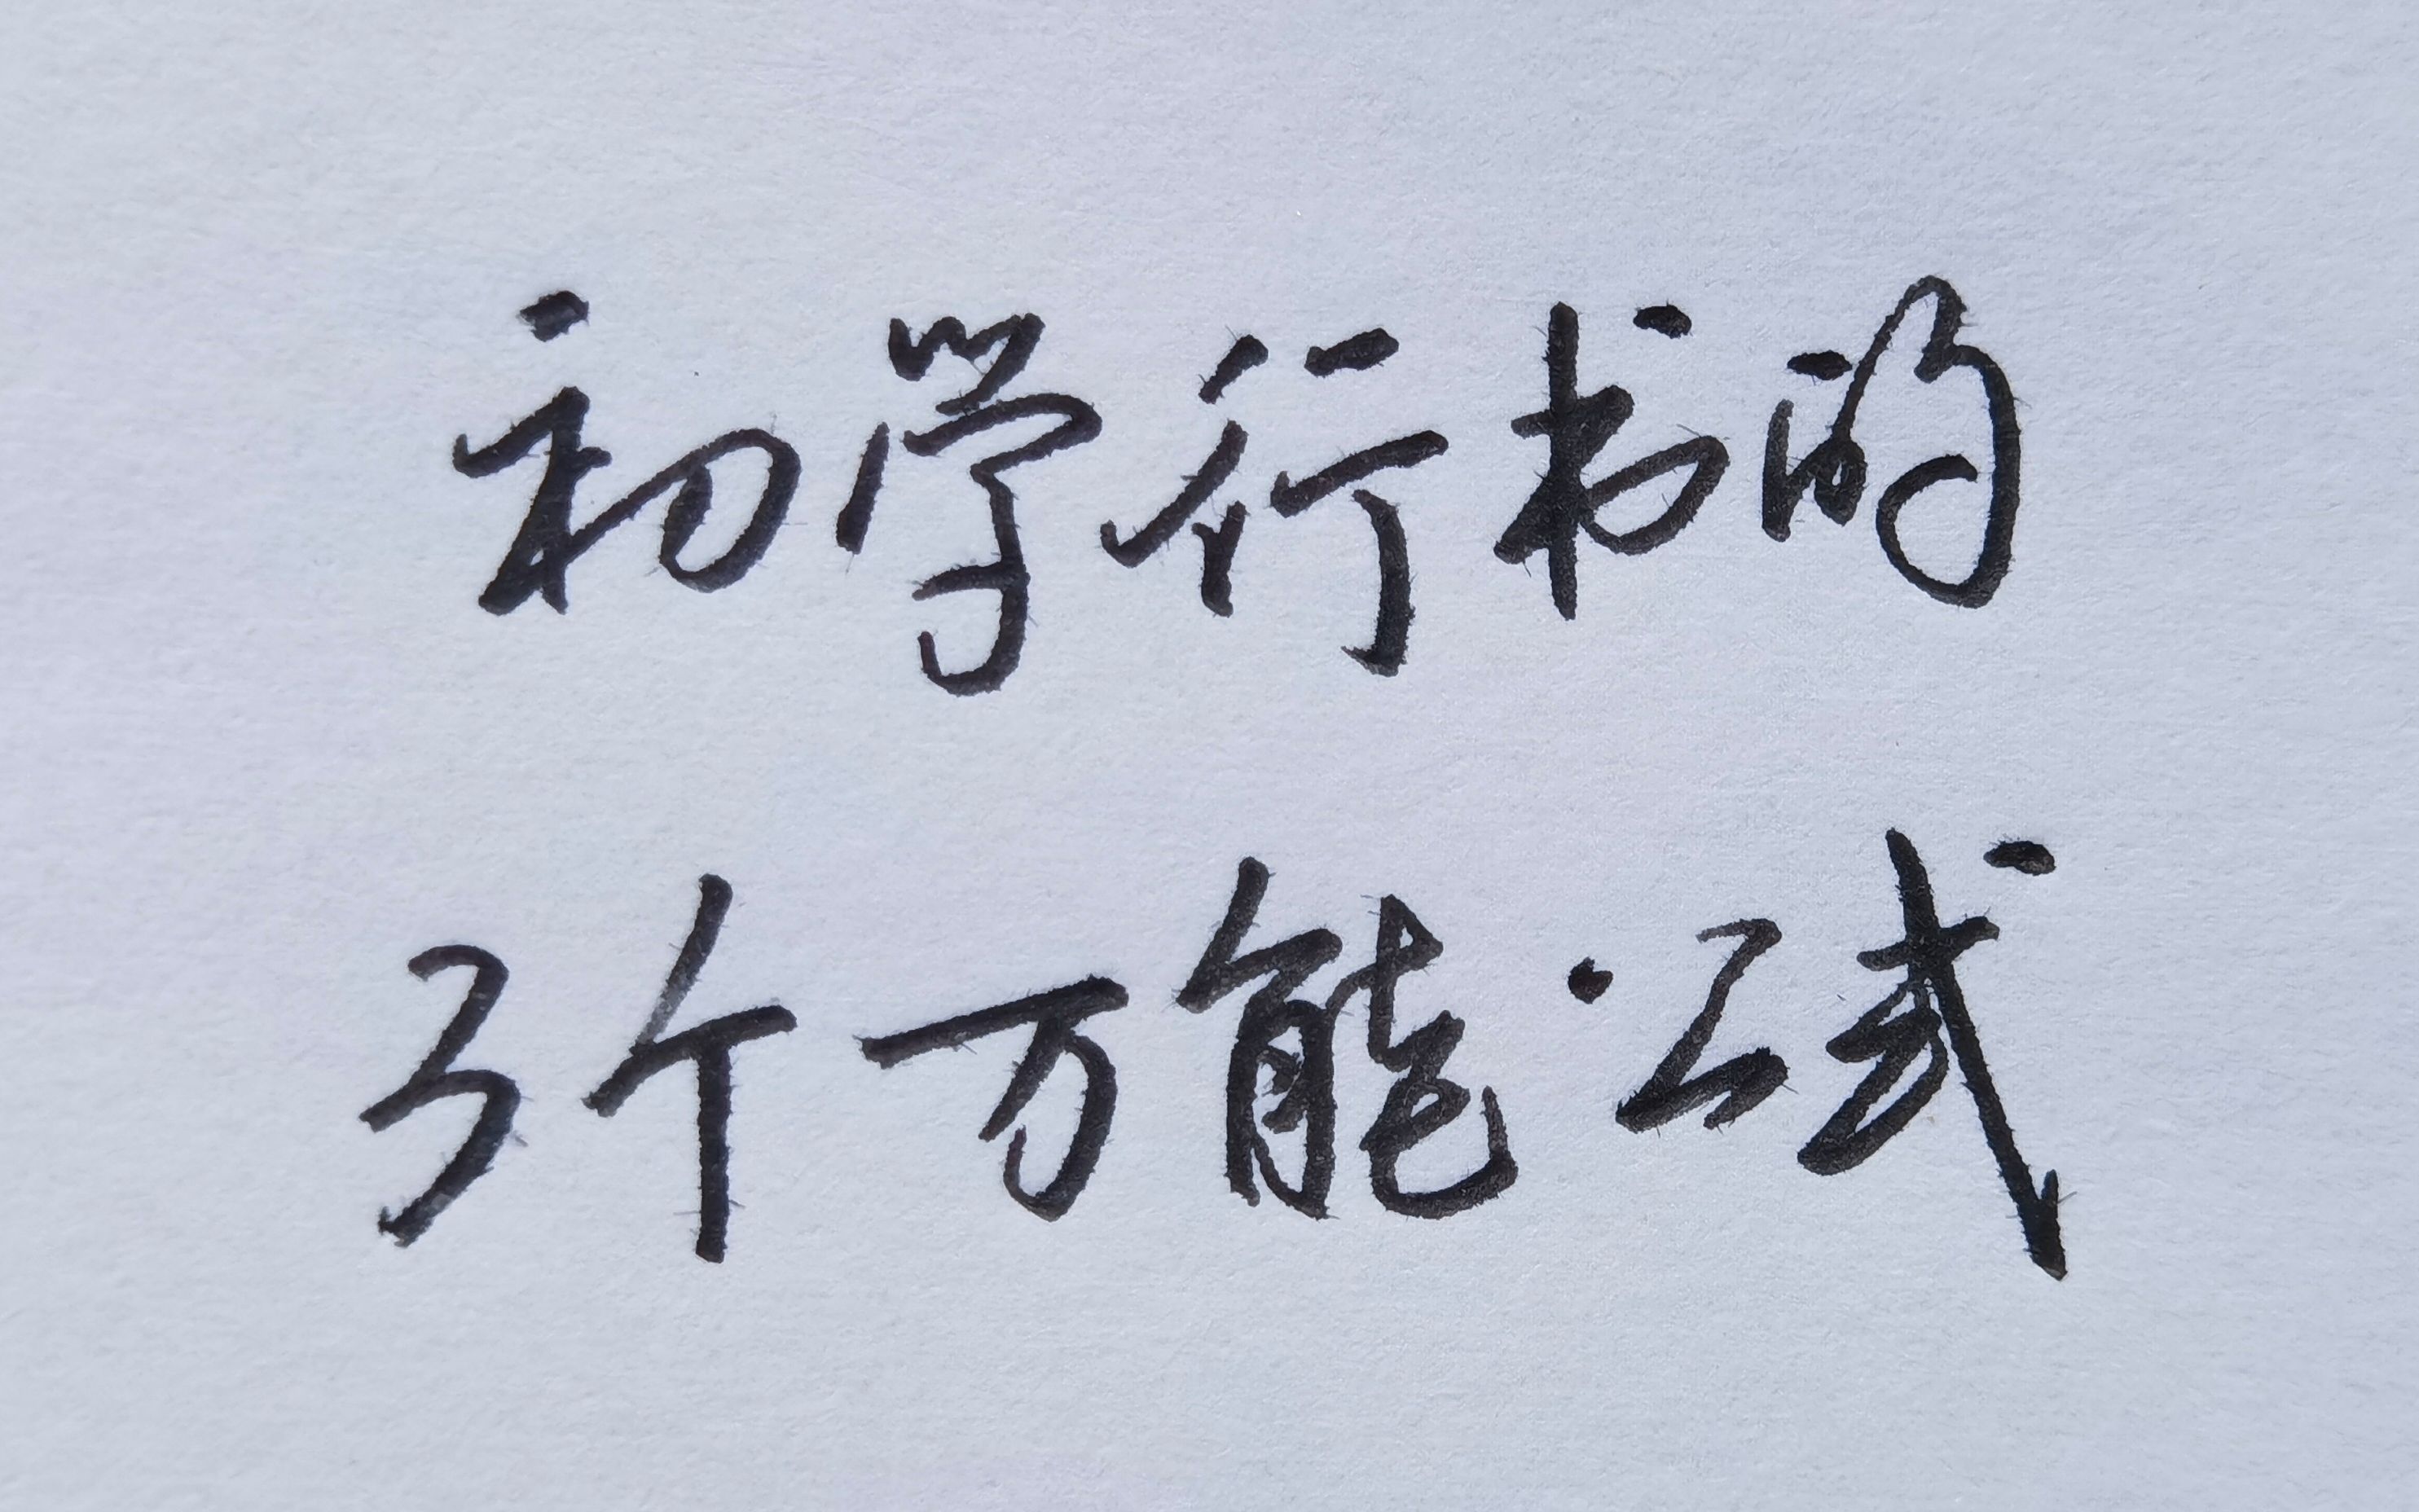 初学行书的
3个万能公式